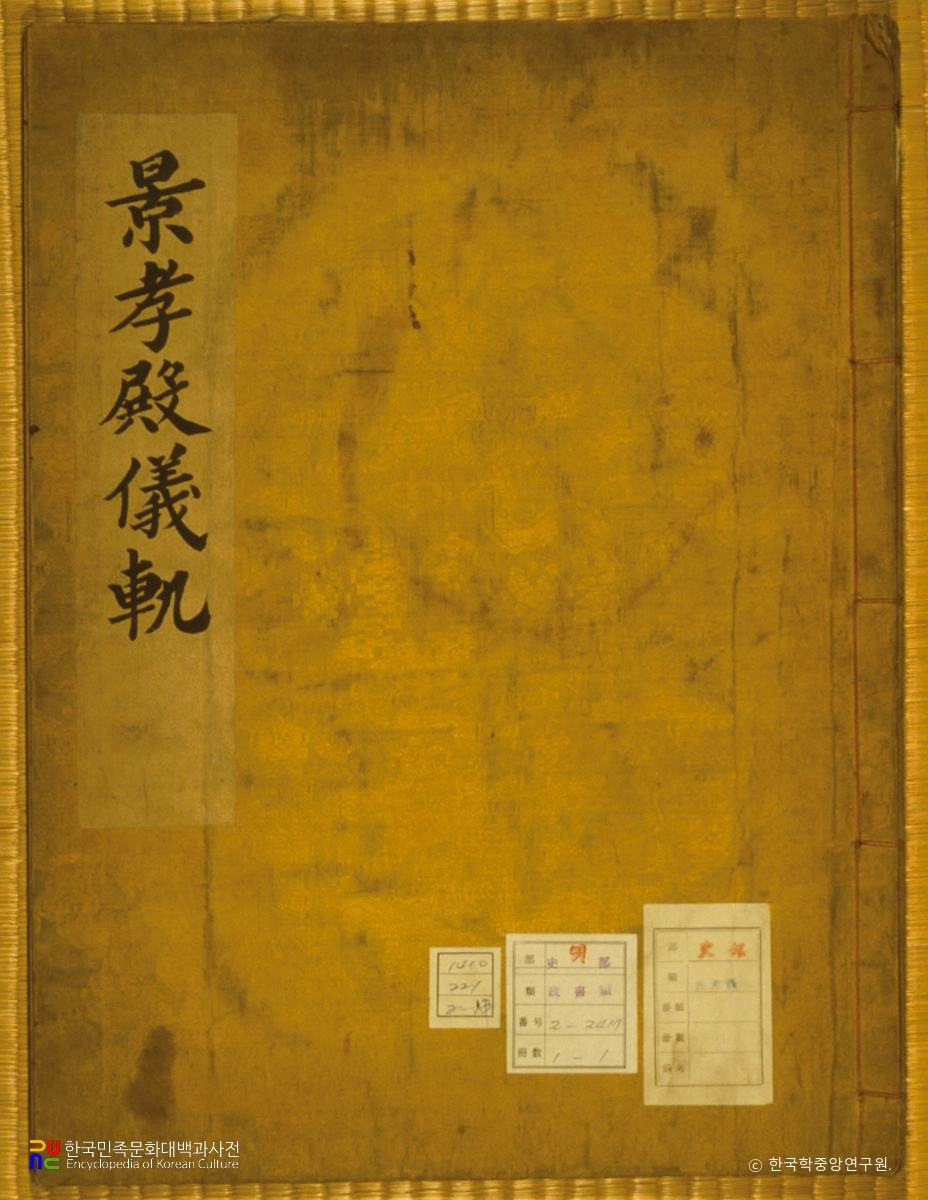 景孝殿儀軌
1410
221
2-
部 史 明 部
類 政書類
番号 2-2417
冊数 1-1
部 史部
類
番號
冊數
備考
한국민족문화대백과사전
Encyclopedia of Korean Culture
© 한국학중앙연구원.